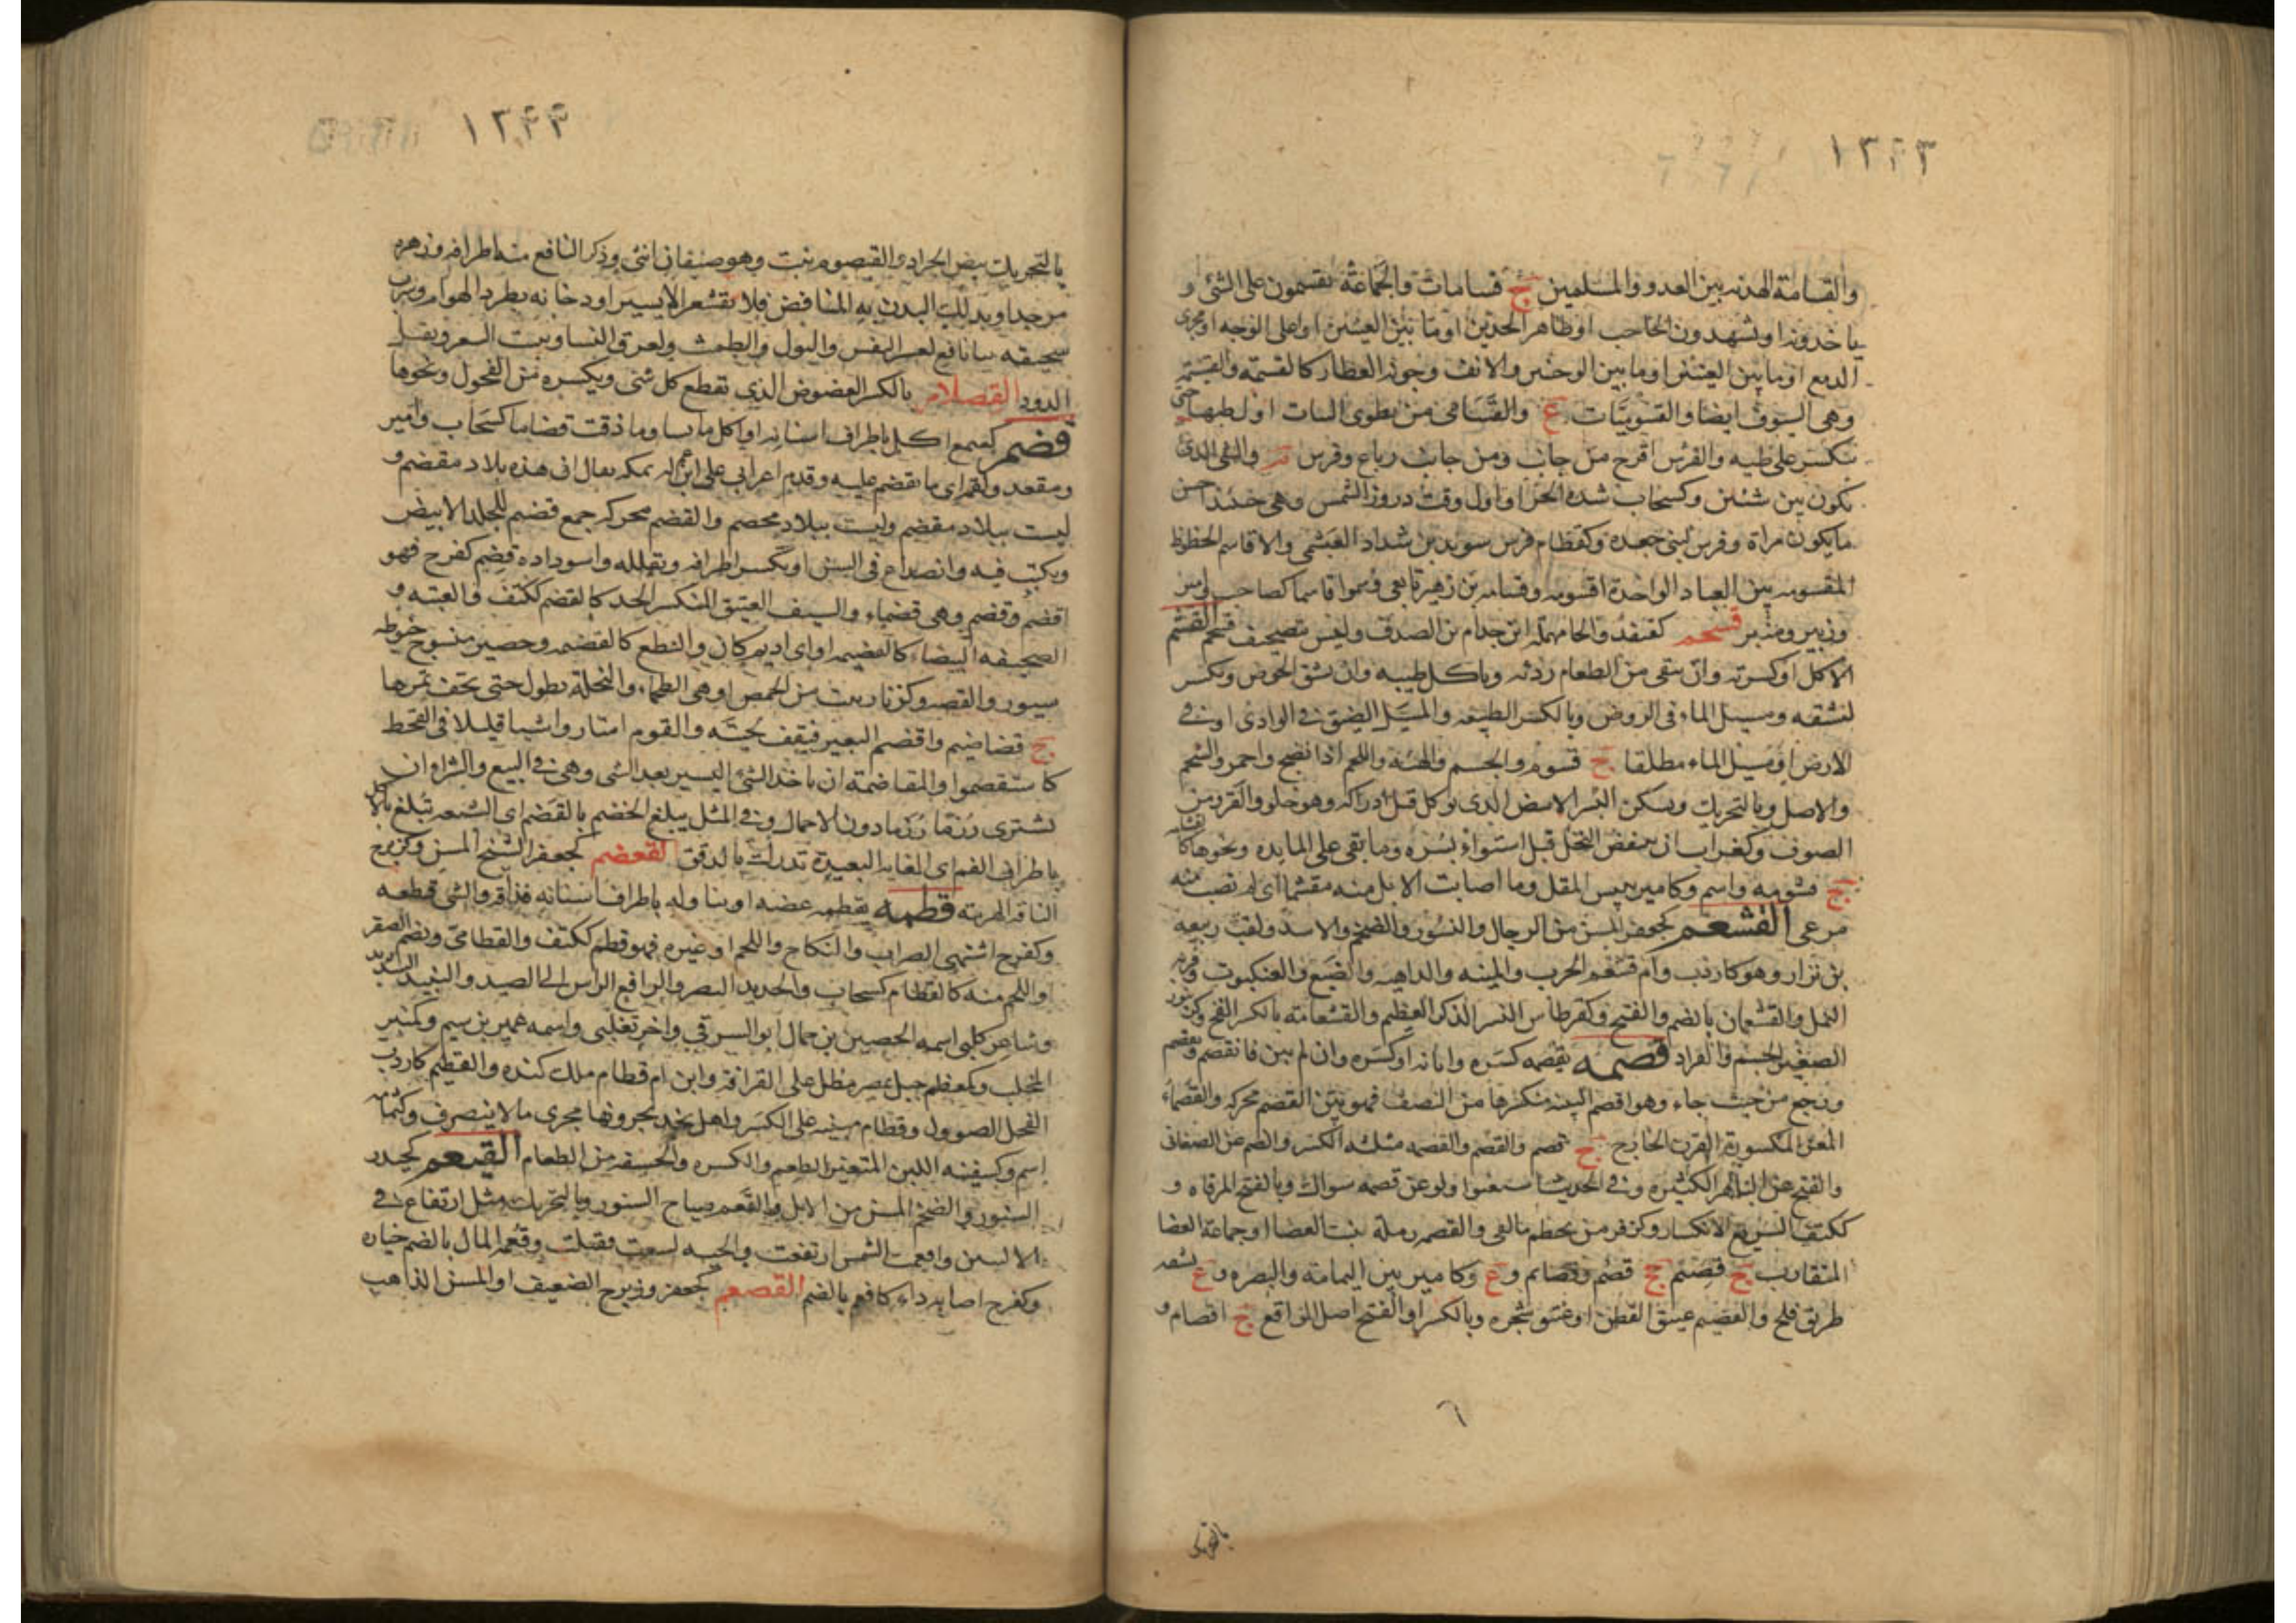 ١٣٤٣
والقسامة الهدنه بين العدو والمسلمين ج قسامات والجماعة يقسمون على الشئ و
ياخذونه او يشهدون الحاجب او ظاهر الخدين او ما بين العينين او اعلى الوجه او مجرى
الدمع او ما بين العينين او ما بين الوجنتين والانف وجونة العطار كالقسمة والقسيمة
وهى السوق ايضا والقسوميات ع والقسامى من يطوى الثياب اول طيها حتى
تنكسر على طيه والفرس اقرح من جانب ومن جانب رباع وفرس والشئ الذى
يكون بين شيئين وكسحاب شدة الحر او اول وقت ذرور الشمس وهى حينئذ احسن
ما يكون مراة وفرس لبنى جعدة وكقطام فرس سويد بن شداد العبشمى والاقاسيم الحظوظ
المقسومه بين العباد الواحدة اقسومه وقسامه بن زهير تابعى وسموا قاسما كصاحب وامير
وزبير ومنبر قسحم كقنفذ والحا مهمله ابن جذام بن الصدف وليس بتصحيف قسحم القشم
الاكل او كثرته وان تنقى من الطعام رديه وياكل طيبه وان يشق الخوص وتكسر
لتشقه ومسيل الماء فى الروض وبالكسر الطبيعه والمسيل الضيق فى الوادى او فى
الارض او مسيل الماء مطلقا ج قشوم والجسم والهيئة واللحم اذا نضج واحمر والشحم
والاصل وبالتحريك ويسكن البسر الابيض الذى يوكل قبل ادراكه وهو حلو والقرد من
الصوف وكغراب ان ينتفض النخل قبل استواء بسره وما بقى على المايده ونحوها كالقشامه
ج قشومه واسم وكامير يبيس المقل وما اصابت الابل منه مقشما اى لم تصب منه
مرعى القشعم كجعفر المسن من الرجال والنسور والضخم والاسد ولقب ربيعه
بن نزار وهو كاردب وام قشعم الحرب والمنيه والداهيه والضبع والعنكبوت وقرية
النمل والقشعمان بالضم والفتح وكقرطاس النسر الذكر العظيم والقشعامة بالكسر الفخ وكزنبور
الصغير الجسم والقراد قصمه يقصمه كسره وابانه او كسره وان لم يبن فانقصم وتقصم
ورجع من حيث جاء وهو اقصم الثنيه منكسرها من النصف فهو بين القصم محركه والقصماء
المعز المكسورة القرن الخارج ج قصم والقصم والقصمه مثلثه الكسر والضم عن الصغانى
والفتح عن ابى الهيثم الكسره وفى الحديث استغنوا ولو عن قصمه سواك وبالفتح المرقاه و
ككتف السريع الانكسار وكزفر من يحطم ما لقى والقصم رملة تنبت الغضا او جماعة الغضا
المتقارب ج قصيم جج قصم وقصائم وع وكامير بين اليمامه والبصره وع لشقه
طريق فلج والقصيم عتيق القطن او عتيق شجره وبالكسر او الفتح اصل المراقع ج اقصام و
٦
بالتحريك
١٣٤٤
بالتحريك بيض الجراد والقيصوم نبت وهو صنفان انثى وذكر النافع منه اطرافه وزهره
مر جدا ويدلك البدن به للنافض فلا يقشعر الا يسير او دخانه يطرد الهوام وشرب
سحيقه نيا نافع لعسر النفس والبول والطمث ولعرق النسا وينبت الشعر ويقتل
الدود القصلام بالكسر العضوض الذى يقطع كل شئ ويكسره من الفحول ونحوها
قضم كسمع اكل باطراف اسنانه او اكل يابسا وما ذقت قضاما كسحاب وامير
ومقعد ولقمة اى ما يقضم عليه وقدم اعرابى على ابن عم له بمكه فقال ان هذه بلاد مقضم و
ليست ببلاد مقضم وليست ببلاد مخضم والقضم محركه جمع قضيم للجلد الابيض
ويكتب فيه وانصداع فى السن او تكسر اطرافه وتفلله واسوداده قضم كفرح فهو
اقضم وقضم وهى قضماء والسيف العتيق المتكسر الحد كالقضم ككتف والعيبه و
الصحيفه البيضاء كالقضيمه او اى اديم كان والنطع كالقضيمه وحصير منسوج خيوطه
سيور والقصه وكزنار نبت من الحمض او هى الطحماء والنخلة تطول حتى يجف ثمرها
ج قضاضيم واقضم البعير فيقف لحيته والقوم امتاروا شيا قليلا فى القحط
كاستقضموا والمقاضمة ان ياخذ الشئ اليسير بعد الشى وهى فى البيع والشرا ان
تشترى رزما رزما دون الاحمال وفى المثل يبلغ الخضم بالقضم اى الشبعه تبلغ بالاكل
باطراف الفم اى الغايه البعيدة تدرك بالرفق القعضم كجعفر الشيخ المسن وكزبرج
الناقه الهرمه قطمه يقطمه عضه او تناوله باطراف اسنانه فذاقه والشئ قطعه
وكفرح اشتهى الضراب والنكاح واللحم او غيره فهو قطم ككتف والقطامى ويضم الصقر
او اللحم منه كالقطام كسحاب والحديد البصر والرافع الراس الى الصيد والنبيذ الشديد
وشاعر كلبى اسمه الحصين بن جمال ابو الشرقى واخر تغلبى واسمه عمير بن شييم وكمنبر
المخلب وكمعظم جبل بمصر مطل على القرافه وابن ام قطام ملك كنده والقطيم كاردب
الفحل الصوول وقطام مبنيه على الكسر واهل نجد يجرونها مجرى ما لا ينصرف وكثمامه
اسم وكسفينه اللبن المتغير الطعم والكسره والحسفه من الطعام القيعم كحيدر
السنور والضخم المسن من الابل والقعم صياح السنور وبالتحريك ميل ارتفاع فى
الاليتين واقعمت الشمس ارتفعت والحيه لسعت فقتلت وقعمة المال بالضم خياره
وكفرح اصابه داء كاقعم بالضم القصعم كجعفر وزبرج الضعيف او المسن الذاهب